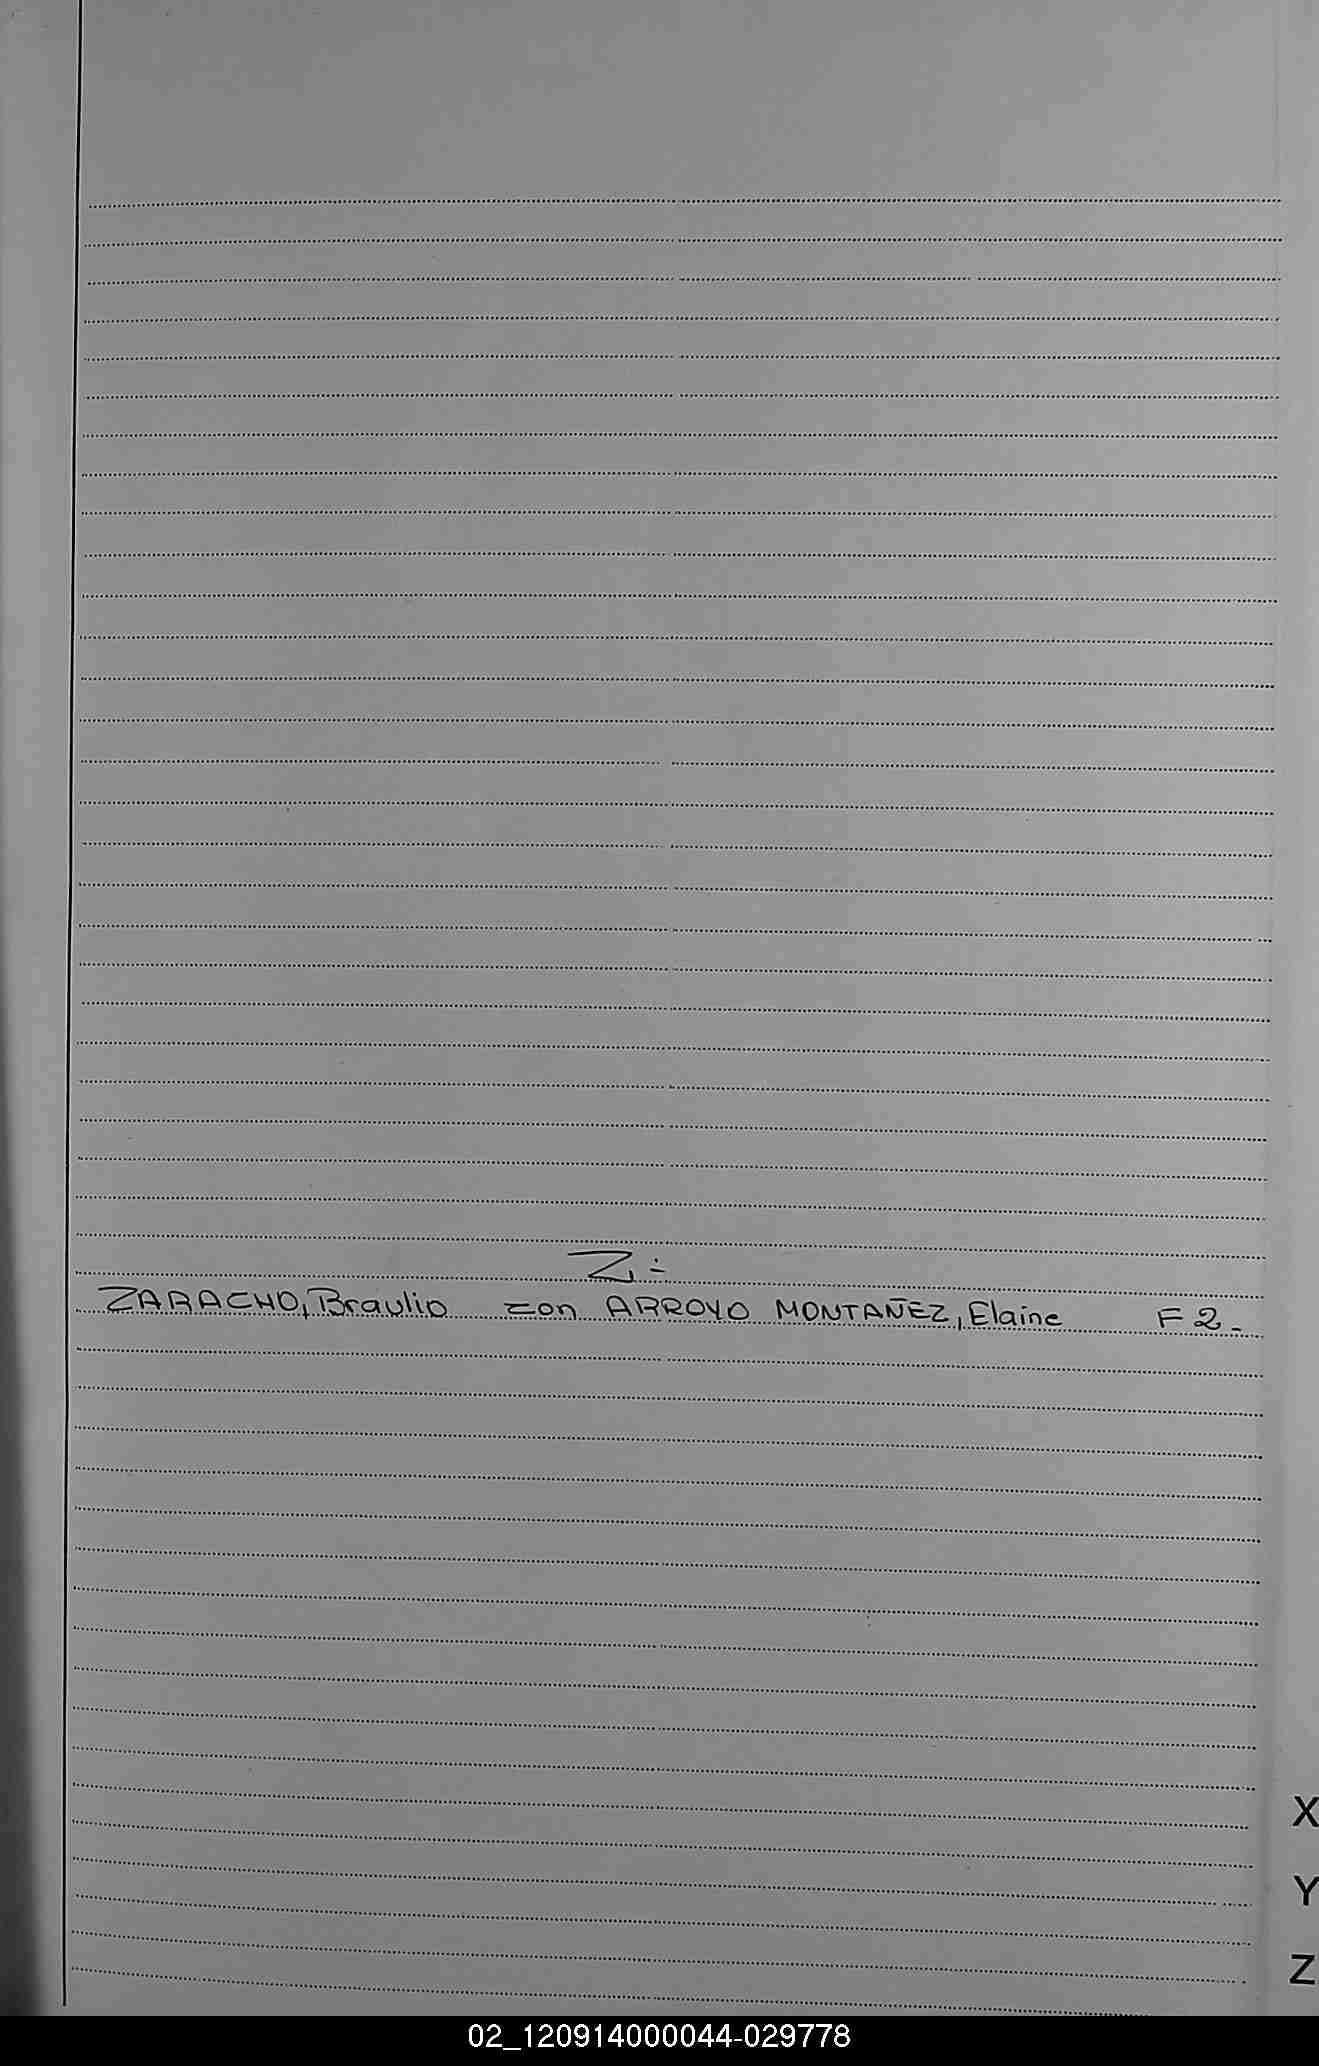 Z=
ZARACHO, Braulio con ARROYO MONTAÑEZ, Elaine F 2.
X
Y
Z
02_120914000044-029778